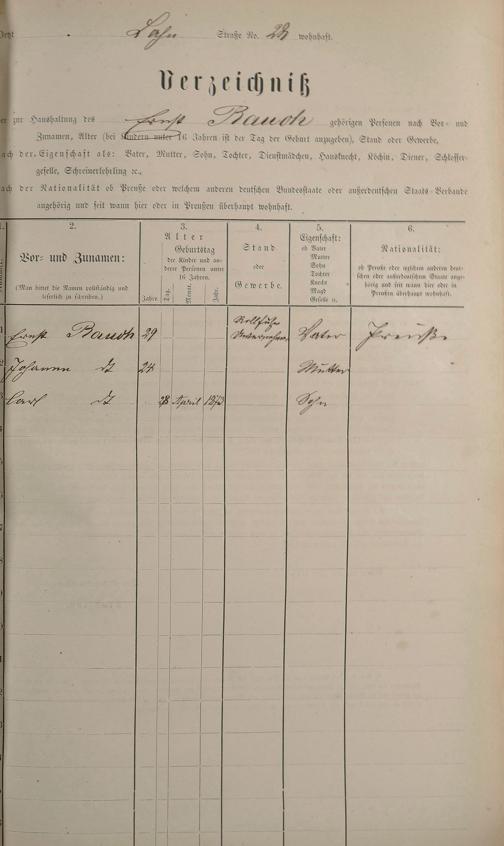 Jetzt Lahn Straße No. 22 wohnhaft.
Verzeichniß
der zur Haushaltung des Ernst Rauch gehörigen Personen nach Vor- und
Zunamen, Alter (bei Kindern unter 16 Jahren ist der Tag der Geburt anzugeben), Stand oder Gewerbe,
nach der Eigenschaft als: Vater, Mutter, Sohn, Tochter, Dienstmädchen, Hausknecht, Köchin, Diener, Schlosser-
geselle, Schreinerlehrling ec.,
nach der Nationalität ob Preuße oder welchem anderen deutschen Bundesstaate oder außerdeutschen Staats-Verbande
angehörig und seit wann hier oder in Preußen überhaupt wohnhaft.
1. 2. 3. 4. 5. 6.
Vor- und Zunamen:
(Man bittet die Namen vollständig und
leserlich zu schreiben.)
Alter
Jahre.
Geburtstag
der Kinder und an-
derer Personen unter
16 Jahren.
Tag. Monat. Jahr.
Stand
oder
Gewerbe.
Eigenschaft:
ob Vater
Mutter
Sohn
Tochter
Knecht
Magd
Geselle u.
Nationalität:
ob Preuße oder welchem anderen deut-
schen oder außerdeutschen Staate ange-
hörig und seit wann hier oder in
Preußen überhaupt wohnhaft.
1 Ernst Rauch 29 Vater Preuße
2 Johanna dt 24 Mutter
3 Carl dt 28 April 1873 Sohn